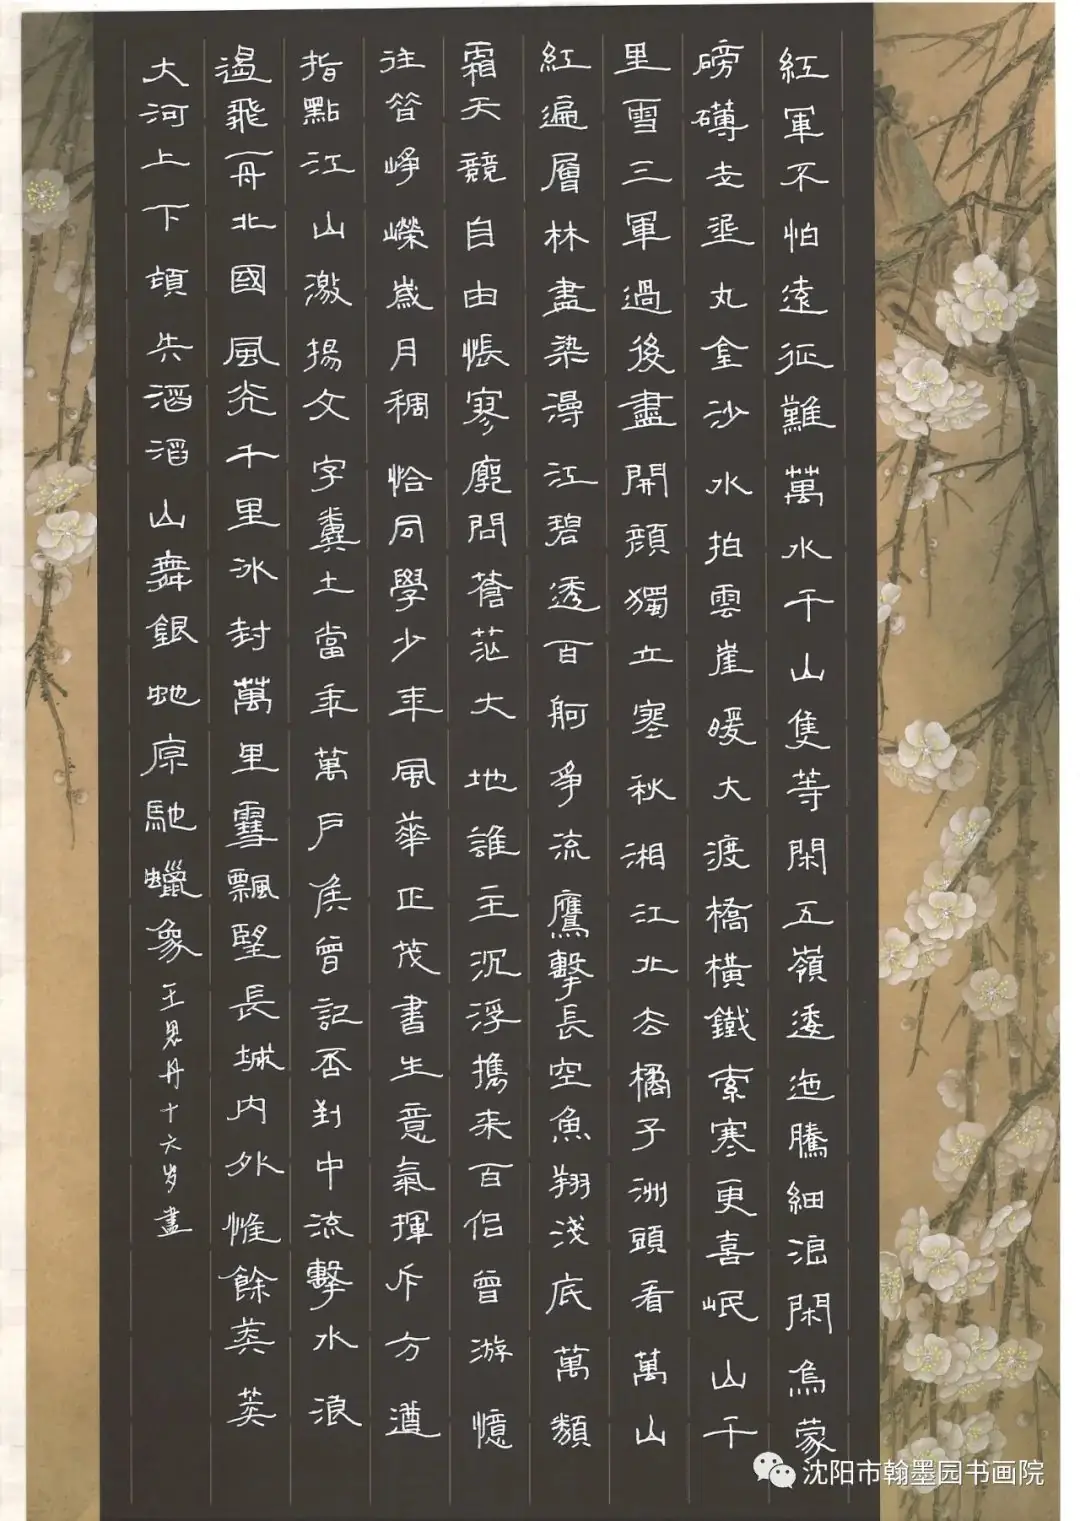 紅軍不怕遠征難萬水千山隻等閑五嶺逶迤騰細浪閑烏蒙
磅礴走埿丸金沙水拍雲崖暖大渡橋橫鐵索寒更喜岷山千
里雪三軍過後盡開顏獨立寒秋湘江北去橘子洲頭看萬山
紅遍層林盡染漫江碧透百舸爭流鷹擊長空魚翔淺底萬類
霜天競自由悵寥廓問蒼茫大地誰主沉浮攜来百侶曾游憶
往昔崢嶸歲月稠恰同學少年風華正茂書生意氣揮斥方遒
指點江山激揚文字糞土當年萬戶侯曾記否到中流擊水浪
遏飛舟北國風光千里冰封萬里雪飄望長城内外惟餘莽莽
大河上下頓失滔滔山舞銀虵原馳蠟象
王思丹十六岁書
沈阳市翰墨园书画院